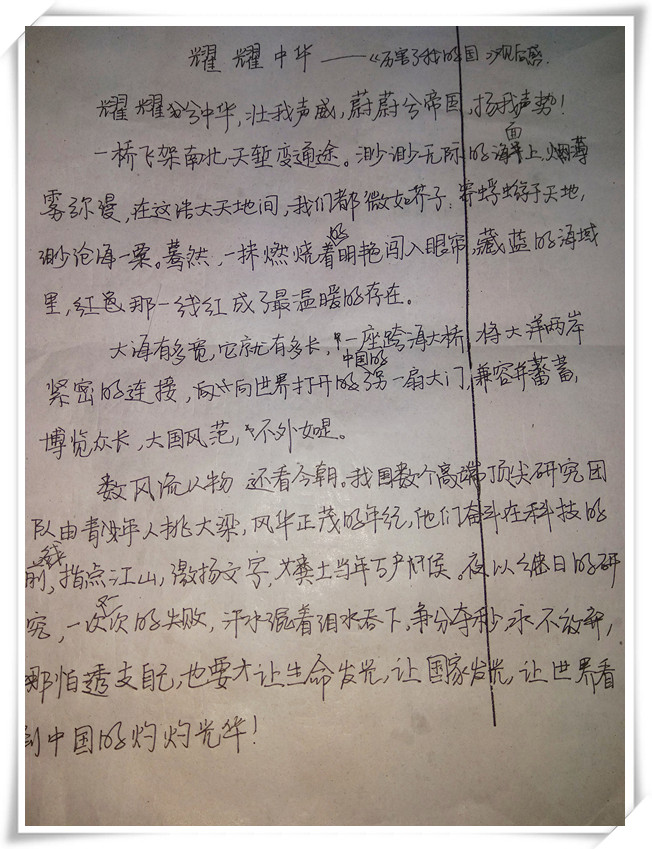 耀耀中华——《厉害了我的国》观后感
耀耀兮中华,壮我声威,蔚蔚兮帝国,扬我声势!
一桥飞架南北,天堑变通途。渺渺无际的海面上,烟薄
雾弥漫,在这浩大天地间,我们都微如芥子:寄蜉蝣于天地,
渺沧海一粟。蓦然,一抹燃烧着的明艳闯入眼帘,藏蓝的海域
里,那一线红成了最温暖的存在。
大海有多宽,它就有多长,一座中国的跨海大桥,将大洋两岸
紧密的连接,向世界打开的另一扇大门,兼容并蓄,
博览众长,大国风范,不外如是。
数风流人物 还看今朝。我国数个高端顶尖研究团
队由青少年人挑大梁,风华正茂的年纪,他们奋斗在科技的
前线,指点江山,激扬文字,粪土当年万户侯。夜以继日的研
究,一次又一次的失败,汗水混着泪水吞下,争分夺秒,永不放弃,
那怕透支自己,也要让生命发光,让国家发光,让世界看
到中国的灼灼光华!